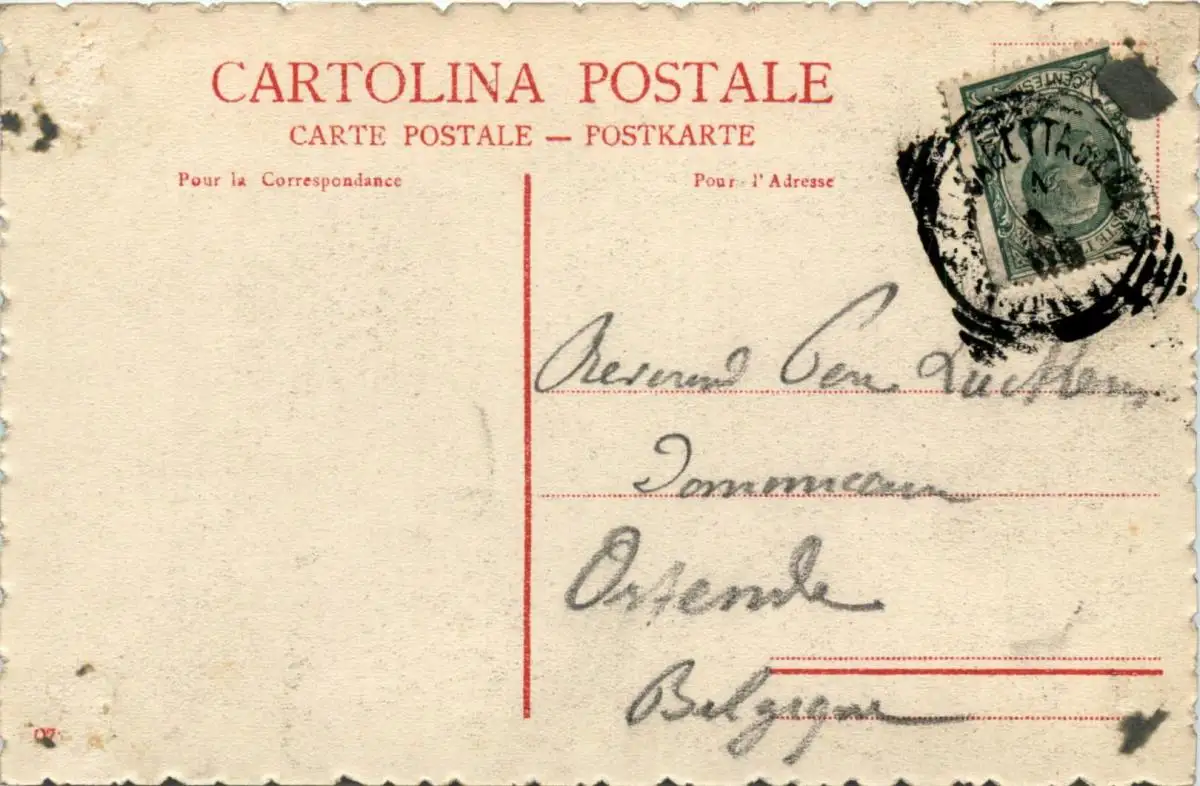 CARTOLINA POSTALE
CARTE POSTALE — POSTKARTE
Pour la Correspondance
Pour l'Adresse
CENTES
Reverend
Ostende
Belgique
07